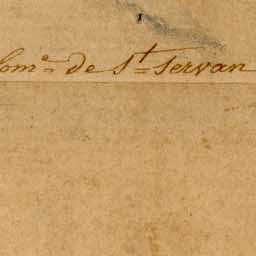 Com.e de St Servan